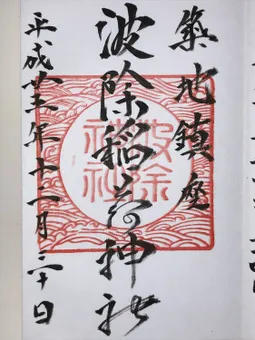 築地鎮座
波除稲荷神社
波除
神社
平成廿五年十一月三十日